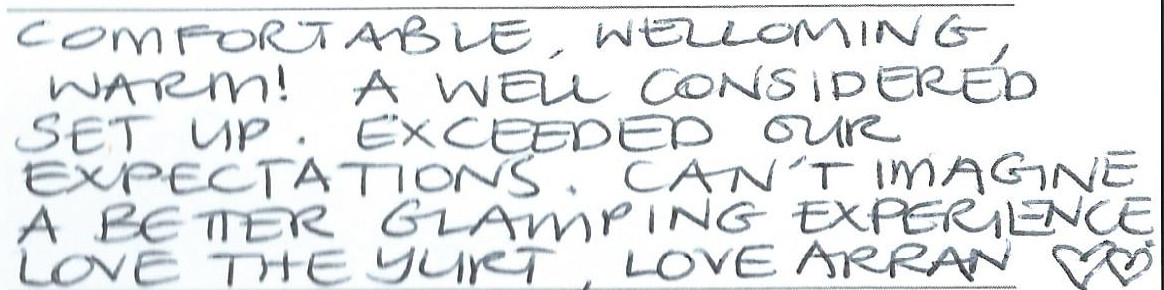 COMFORTABLE, WELCOMING,
WARM! A WELL CONSIDERED
SET UP. EXCEEDED OUR
EXPECTATIONS. CAN'T IMAGINE
A BETTER GLAMPING EXPERIENCE.
LOVE THE YURT, LOVE ARRAN ♡♡